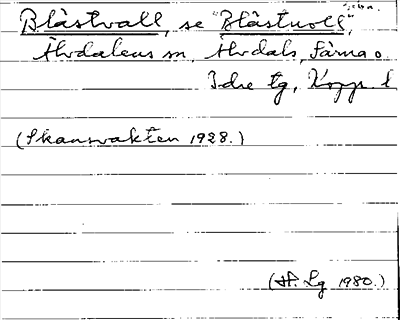 Blåstvall, se "Blåstvoll",
Älvdalens sn, Älvdals, Särna o.
Idre tg, Kopp. l
(Skansvakten 1928.)
(H. Lg 1980.)